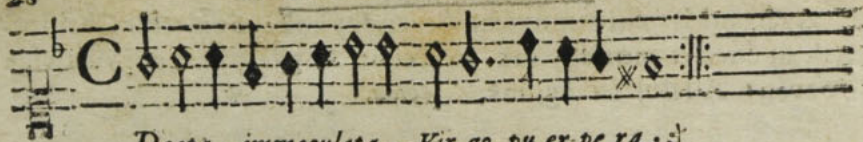 Beata immaculata Virgo pu er-pe ra .